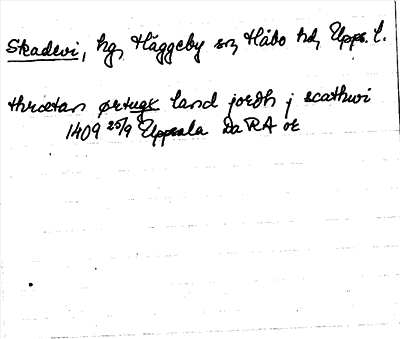 Skadevi, hg, Häggeby sn, Håbo hd, Upps. l.
thrætan ørtugx land jordh j scathwi
1409 25/9 Uppsala Da RA or